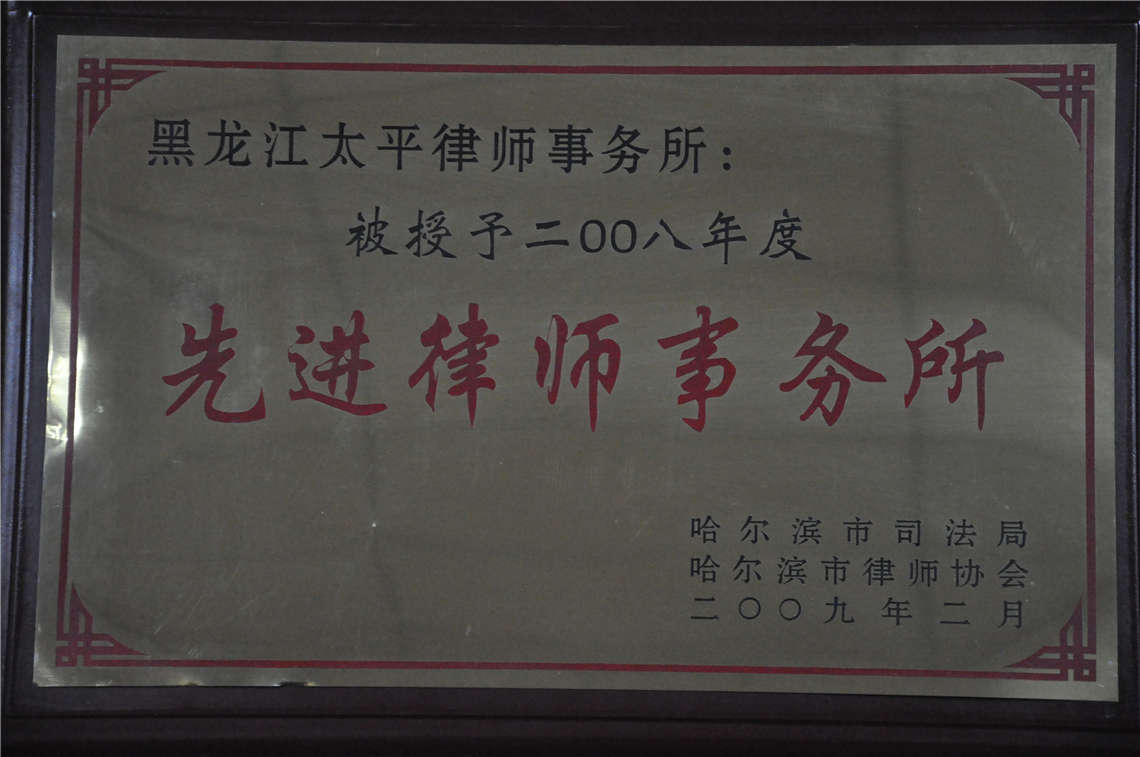 黑龙江太平律师事务所：
被授予二OO八年度
先进律师事务所
哈尔滨市司法局
哈尔滨市律师协会
二〇〇九年二月